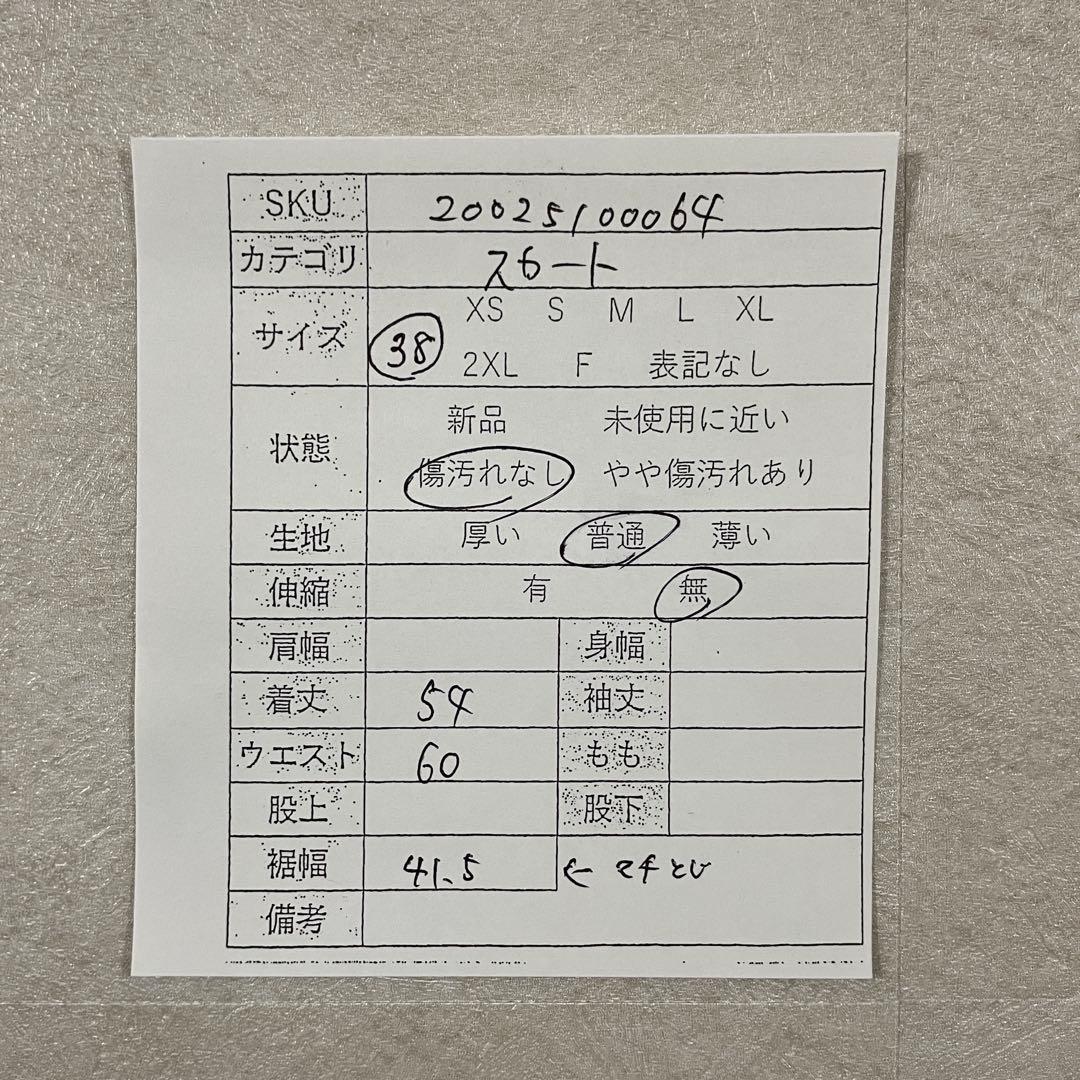 SKU 20025100064
カテゴリ スカート
サイズ 38 XS S M L XL
2XL F 表記なし
状態 新品 未使用に近い
傷汚れなし やや傷汚れあり
生地 厚い 普通 薄い
伸縮 有 無
肩幅 身幅
着丈 54 袖丈
ウエスト 60 もも
股上 股下
裾幅 41.5 ←
備考